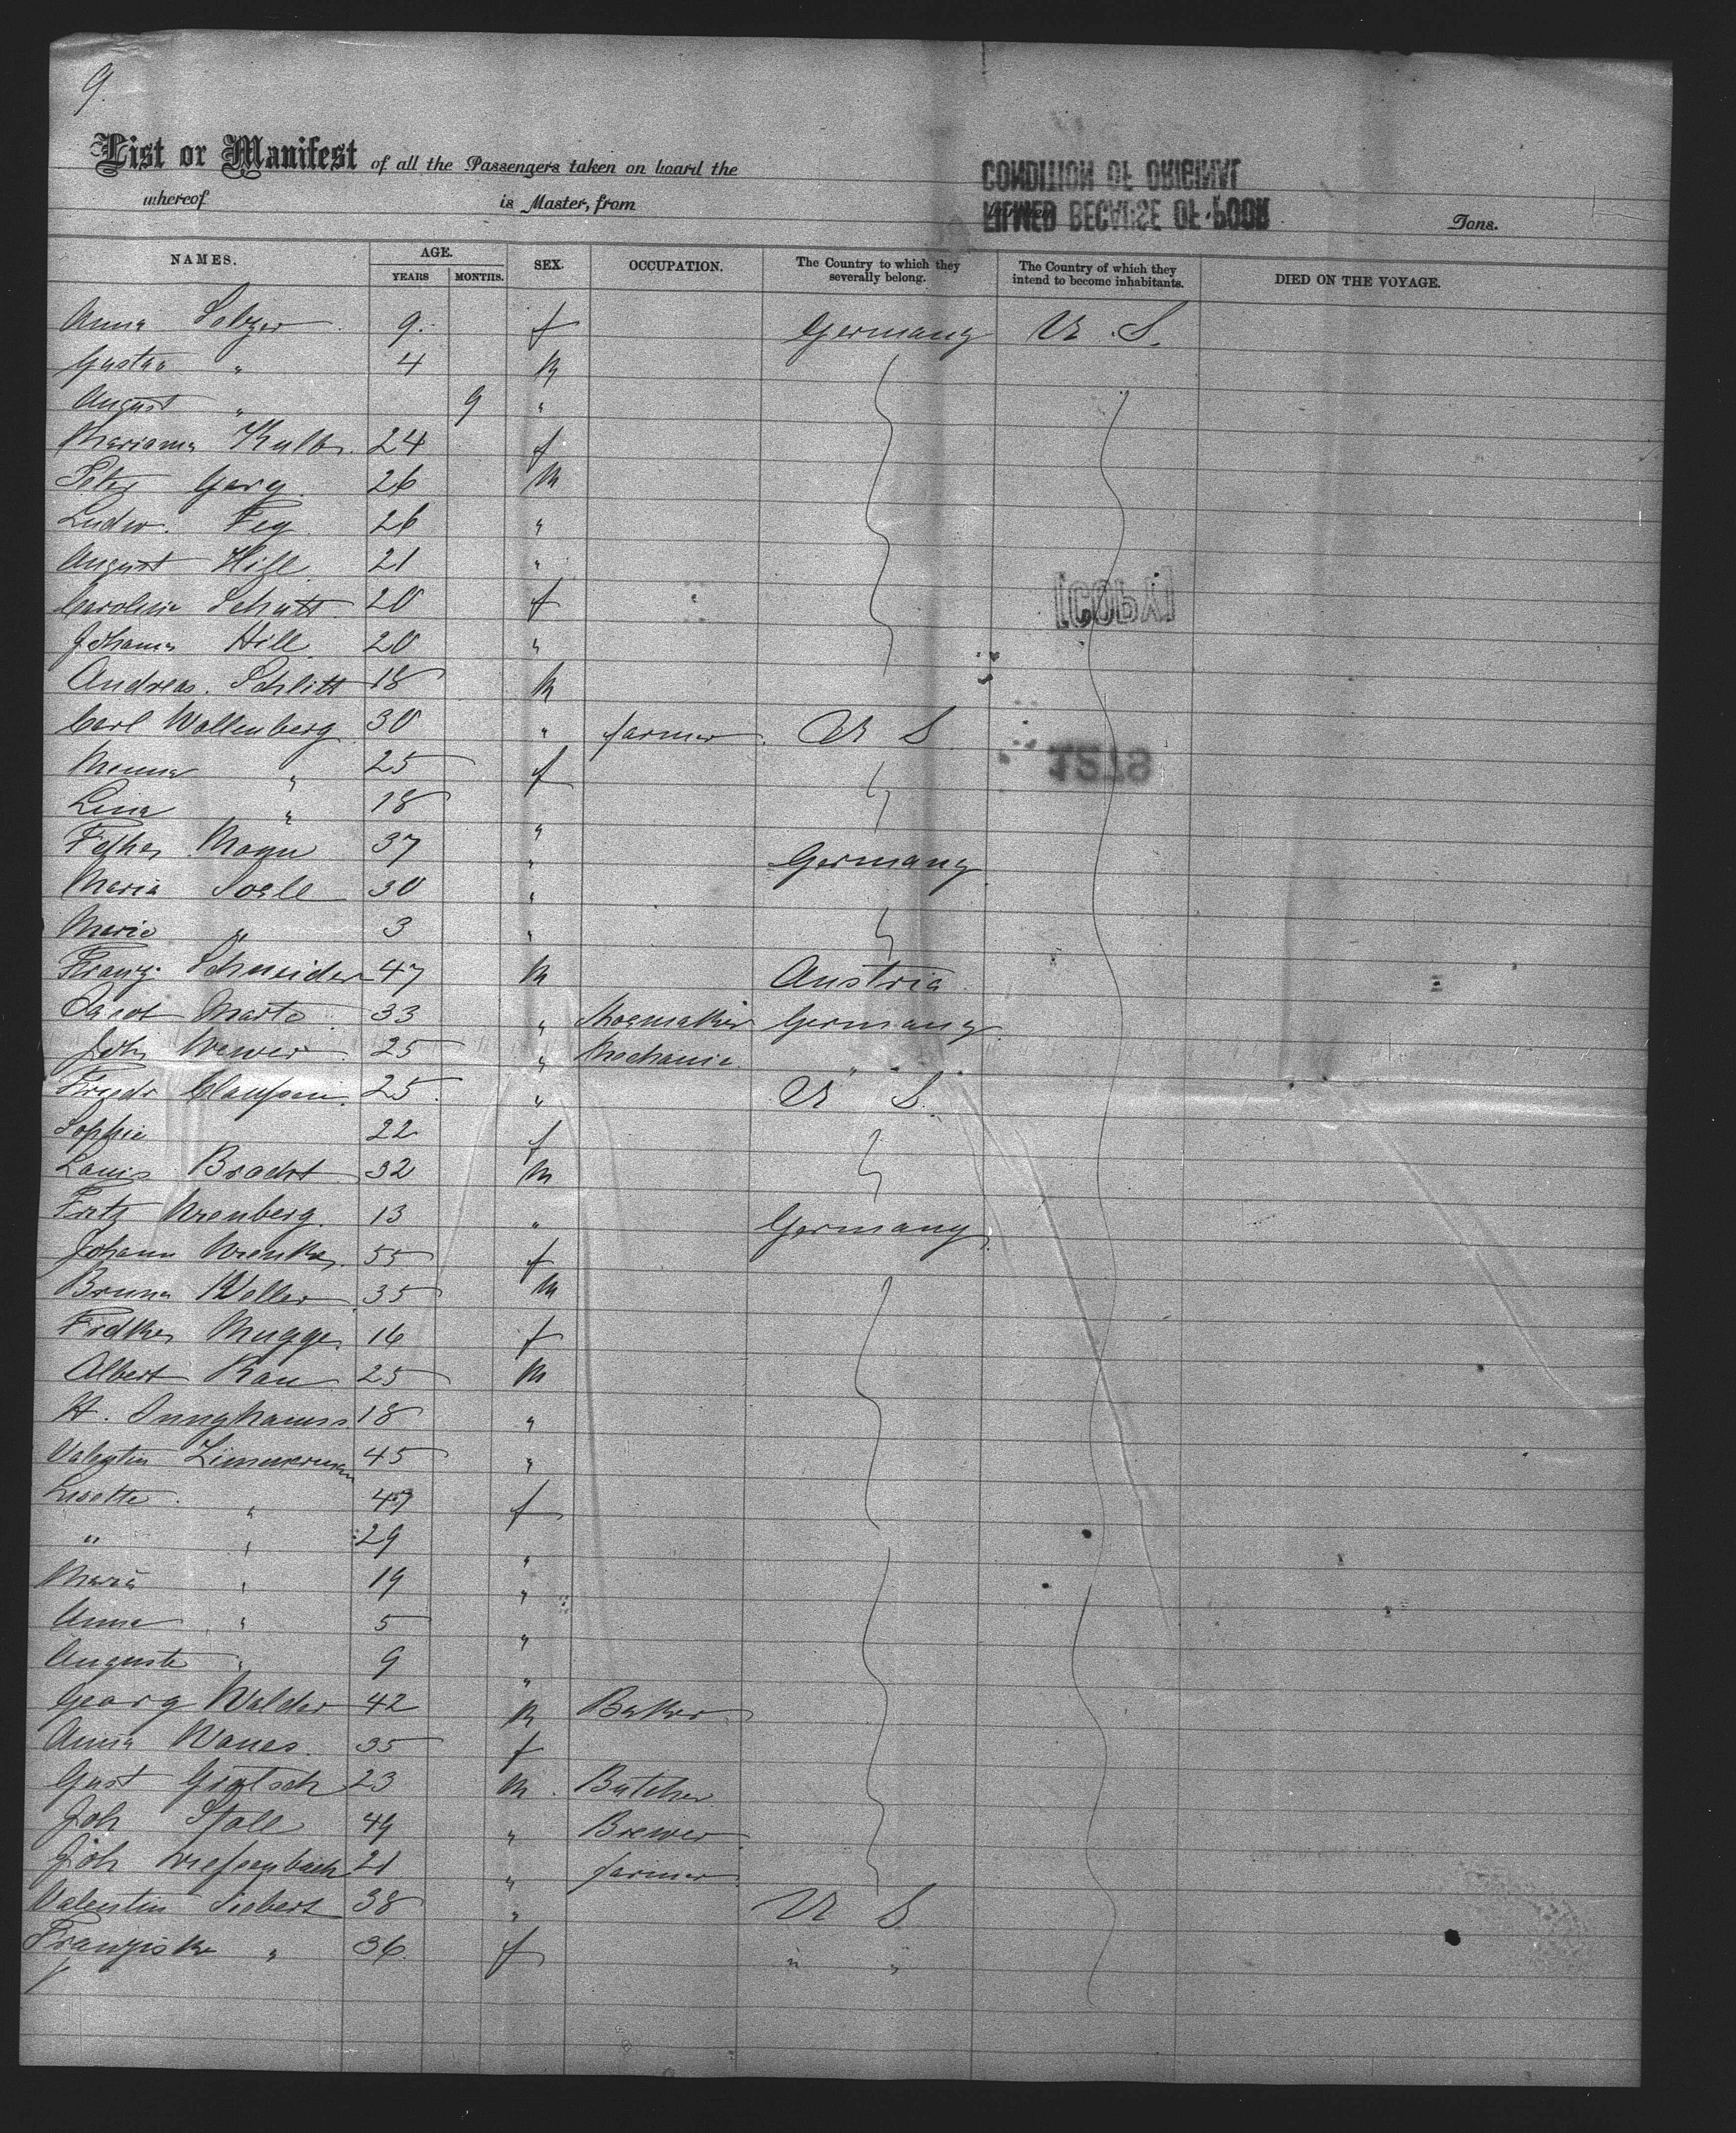 9.
List or Manifest of all the Passengers taken on board the
whereof is Master, from
CONDITION OF ORIGINAL
FILMED BECAUSE OF POOR
Tons.
NAMES. AGE. SEX. OCCUPATION. The Country to which they severally belong. The Country of which they intend to become inhabitants. DIED ON THE VOYAGE.
YEARS MONTHS.
Anna 9 f Germany U. S.
Gustav " 4 M
August " 9 "
24 f
Peter 26 M
Ludw. Fey 26 "
August Hill 21 "
[COPY]
Caroline 20 f
Johanna Hill 20 "
Andreas Schlitt 18 M
Carl Wallenberg 30 " farmer U S
1279
" 25 f
Lina " 18 "
37 " Germany
Maria 30 "
Marie " 3 "
Franz Schneider 47 M Austria
Jacob 33 " Shoemaker Germany
Joh. 25 " Mechanic "
Friedr Claussen 25 " U S.
Sophie 22 f
Louis Bracht 32 M
Fritz 13 " Germany
Johann 55 f
Bruno 35 M
Mugge 16 f
Albert Rau 25 M
H. Junghanns 18 "
Valentin Zimmerman 45 "
Lisette " 47 f
" " 29 "
Maria " 19 "
Anna " 5 "
Auguste " 9 "
Georg Walder 42 M Baker
Anna 35 f
Gust 23 M Butcher
Joh 49 " Brewer
Joh 21 " farmer
Valentin Siebert 38 " U S
Franziska " 36 f " "